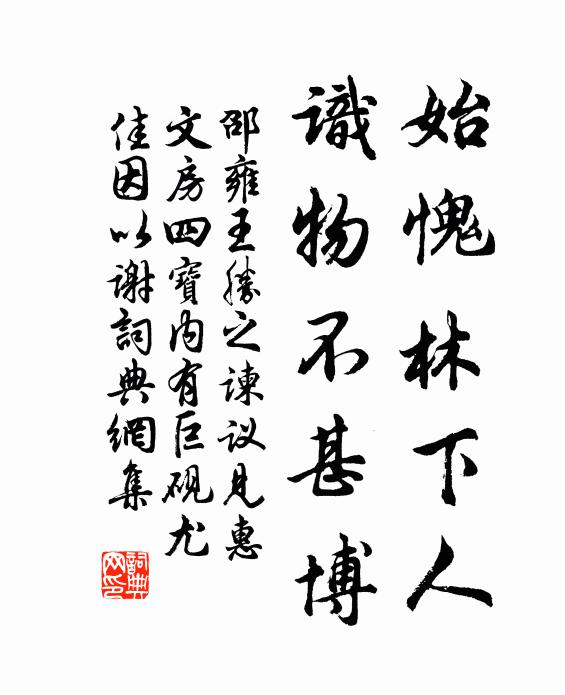 始愧林下人
識物不甚博
邵雍王勝之諫议見惠
文房四寶内有巨砚尤
佳因以谢詞典網集
詞典
网印